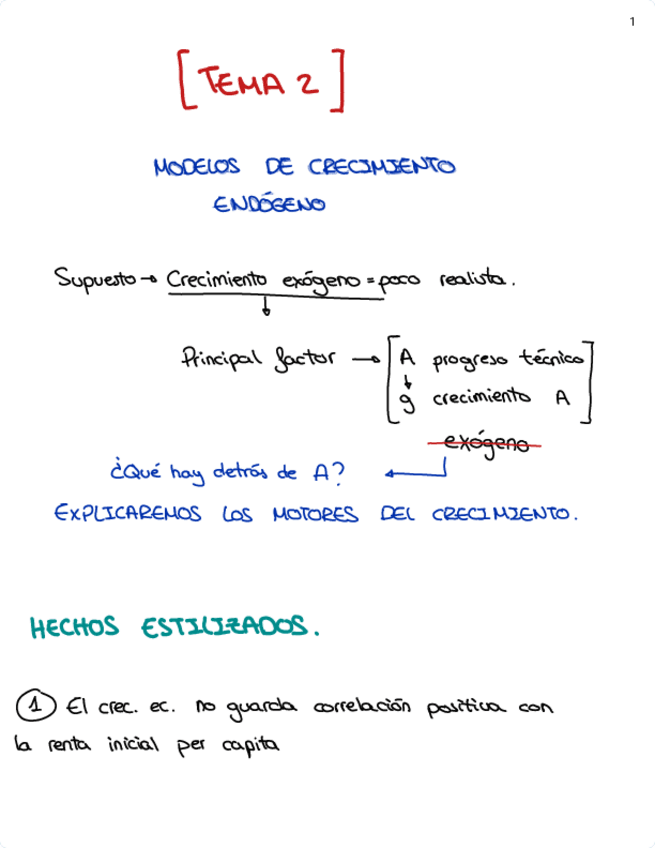 1
[TEMA 2]
MODELOS DE CRECIMIENTO
ENDÓGENO
Supuesto → Crecimiento exógeno = poco realista.
↓
Principal factor → [A progreso técnico]
↓
g crecimiento A
exógeno
¿Qué hay detrás de A? ←
EXPLICAREMOS LOS MOTORES DEL CRECIMIENTO.
HECHOS ESTILIZADOS.
① El crec. ec. no guarda correlación positiva con
la renta inicial per capita